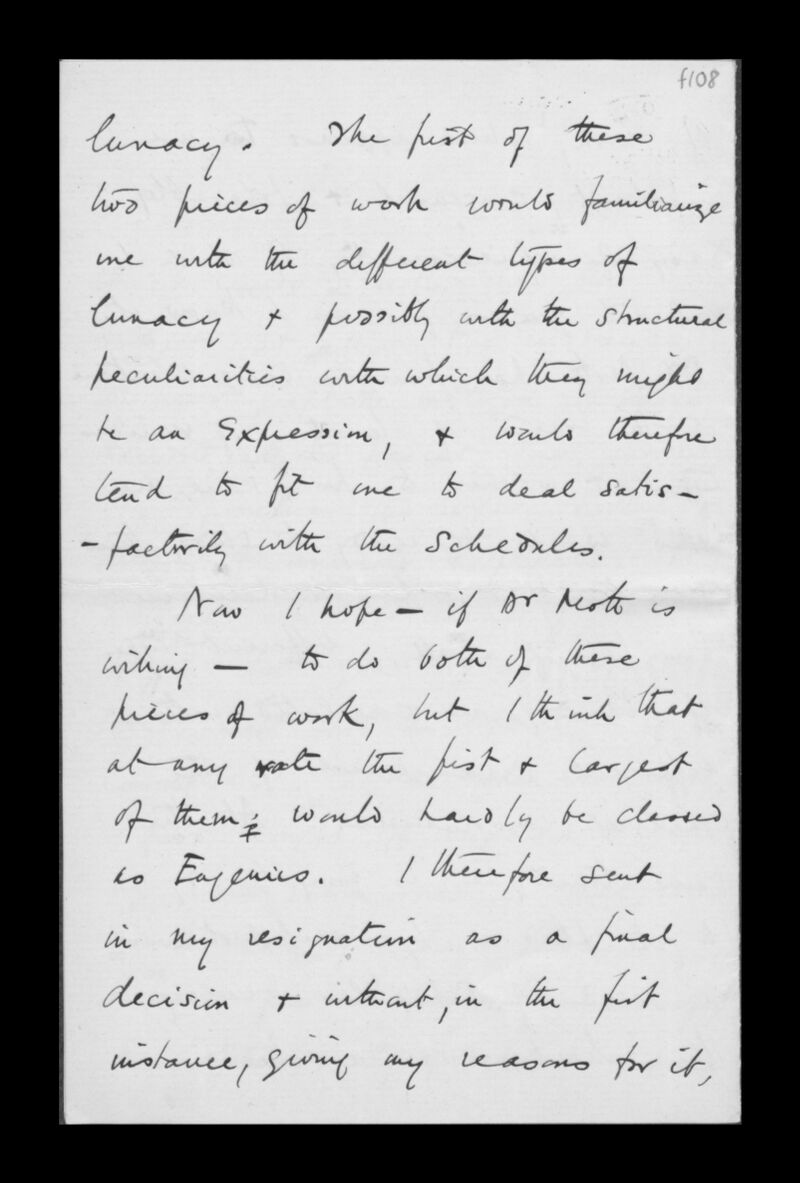 f108
lunacy. The first of these
two pieces of work would familiarize
me with the different types of
lunacy & possibly with the structural
peculiarities with which they might
be an Expression, & would therefore
tend to fit me to deal satis-
-factorily with the Schedules.
Now I hope — if Dr Mott is
willing — to do both of these
pieces of work, but I think that
at any rate the first & largest
of them, would hardly be classed
as Eugenics. I therefore sent
in my resignation as a final
decision & without, in the first
instance, giving my reasons for it,